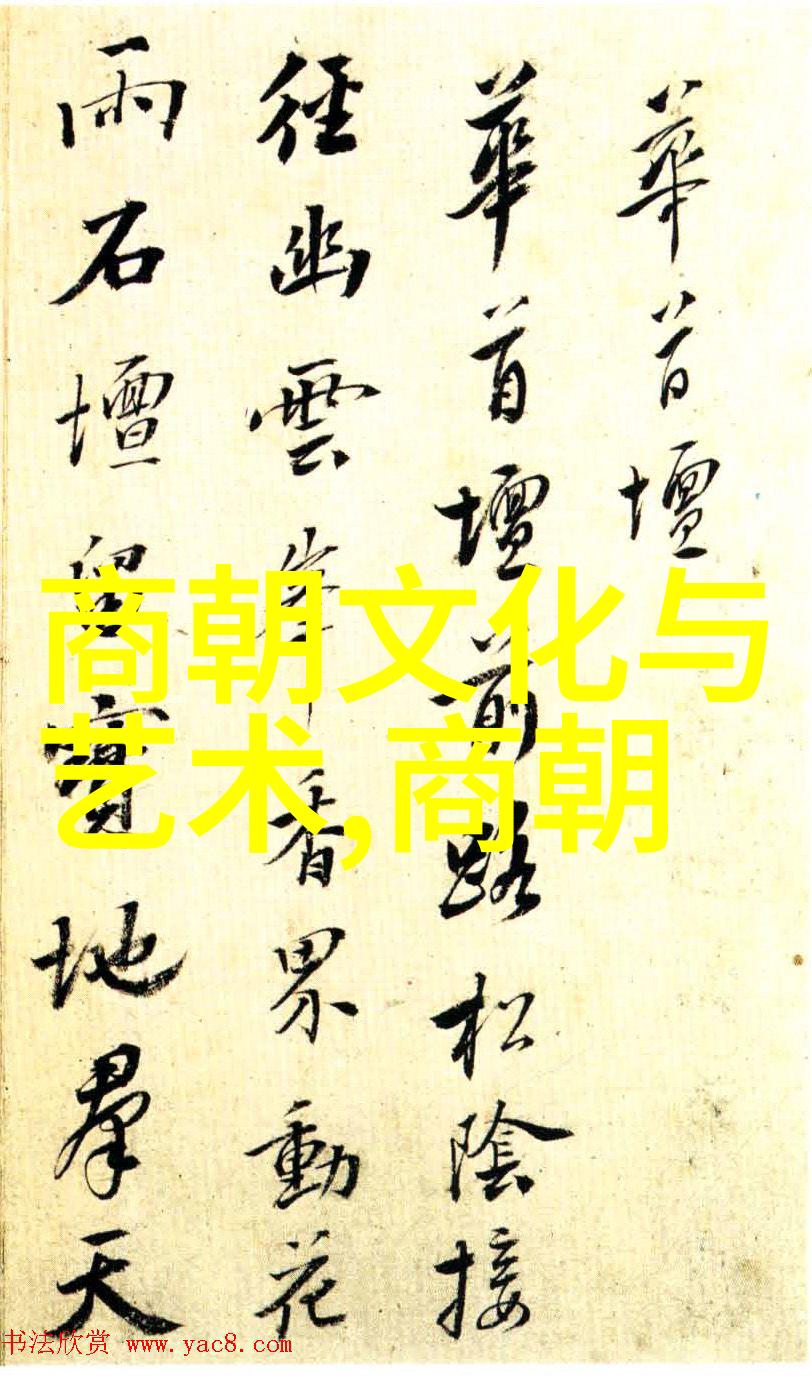 華首壇
華首壇前路松陰接
徑幽雲峯香界動花
雨石壇留寶地羣天
商朝文化与
艺术,商朝
书法欣赏 www.yac8.com